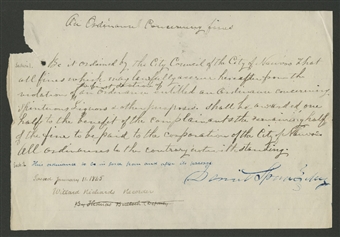 An Ordinance Concerning fines
Be it ordained by the City Council of the City of Nauvoo that
all fines which may lawfully accrue hereafter from the
violation of an Ordinance entitled an Ordinance concerning
Spirituous Liquors & other purposes shall be awarded one
half to the benefit of the complainant & the remaining half
of the fine to be paid to the corporation of the City of Nauvoo
All ordinances to the contrary notwithstanding.
This ordinance to be in force from and after its passage
January 11. 1845
Willard Richards Recorder
Daniel Spencer